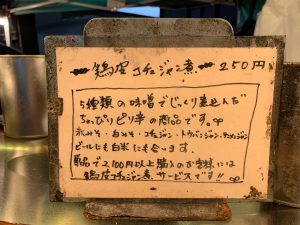 鶏皮コチュジャン煮 250円
5種類の味噌でじっくり煮込んだ
ちょっぴりピリ辛の商品です。
赤みそ・白みそ・コチュジャン・トウバンジャン・テンメンジャン
ビールにも白米にも合います。
商品で2,100円以上購入のお客様には
鶏皮コチュジャン煮 サービスです!!